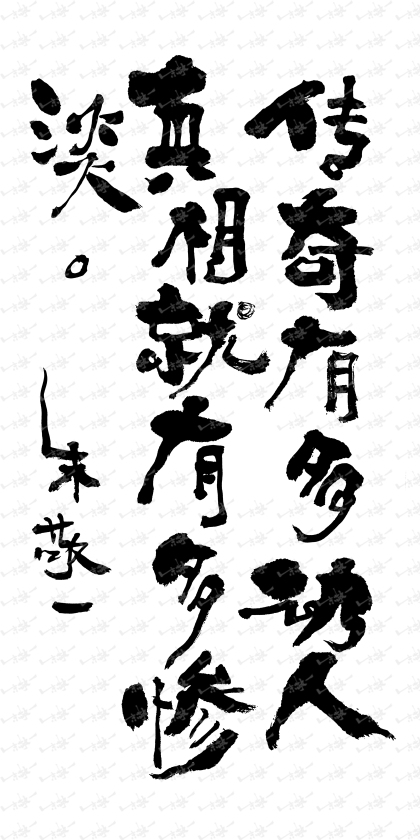 传奇有多动人
真相就有多惨
淡。
朱敬一